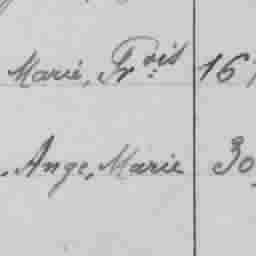 Marie, Fr.ois 16
. Ange, Marie 30